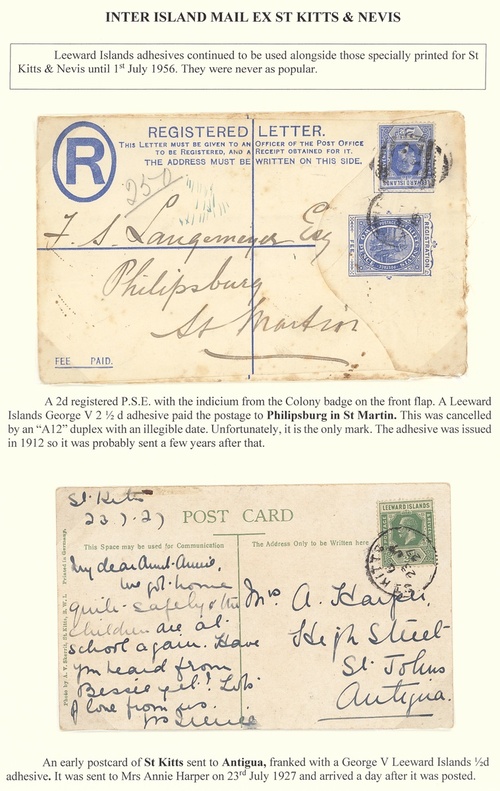 INTER ISLAND MAIL EX ST KITTS & NEVIS
Leeward Islands adhesives continued to be used alongside those specially printed for St
Kitts & Nevis until 1st July 1956. They were never as popular.
REGISTERED LETTER.
THIS LETTER MUST BE GIVEN TO AN OFFICER OF THE POST OFFICE
TO BE REGISTERED, AND A RECEIPT OBTAINED FOR IT.
THE ADDRESS MUST BE WRITTEN ON THIS SIDE.
R
250
LEEWARD ISLANDS
F. S. Langemeyer Esq
REGISTRATION
FEE.
Philipsburg
St Martin
FEE PAID.
A 2d registered P.S.E. with the indicium from the Colony badge on the front flap. A Leeward
Islands George V 2 ½ d adhesive paid the postage to Philipsburg in St Martin. This was cancelled
by an “A12” duplex with an illegible date. Unfortunately, it is the only mark. The adhesive was issued
in 1912 so it was probably sent a few years after that.
St. Kitts
23.7.27
POST CARD
LEEWARD ISLANDS
ST KITTS
This Space may be used for Communication
The Address Only to be Written here
Photo by A. V. Sherrit, St. Kitts, B.W.I. Printed in Germany.
My dear Aunt Annie,
We got home
quite safely & the
children are at
school again. Have
you heard from
Bessie yet? Lots
of love from us.
Mrs A. Harper,
High Street
St. Johns
Antigua.
An early postcard of St Kitts sent to Antigua, franked with a George V Leeward Islands ½d
adhesive. It was sent to Mrs Annie Harper on 23rd July 1927 and arrived a day after it was posted.